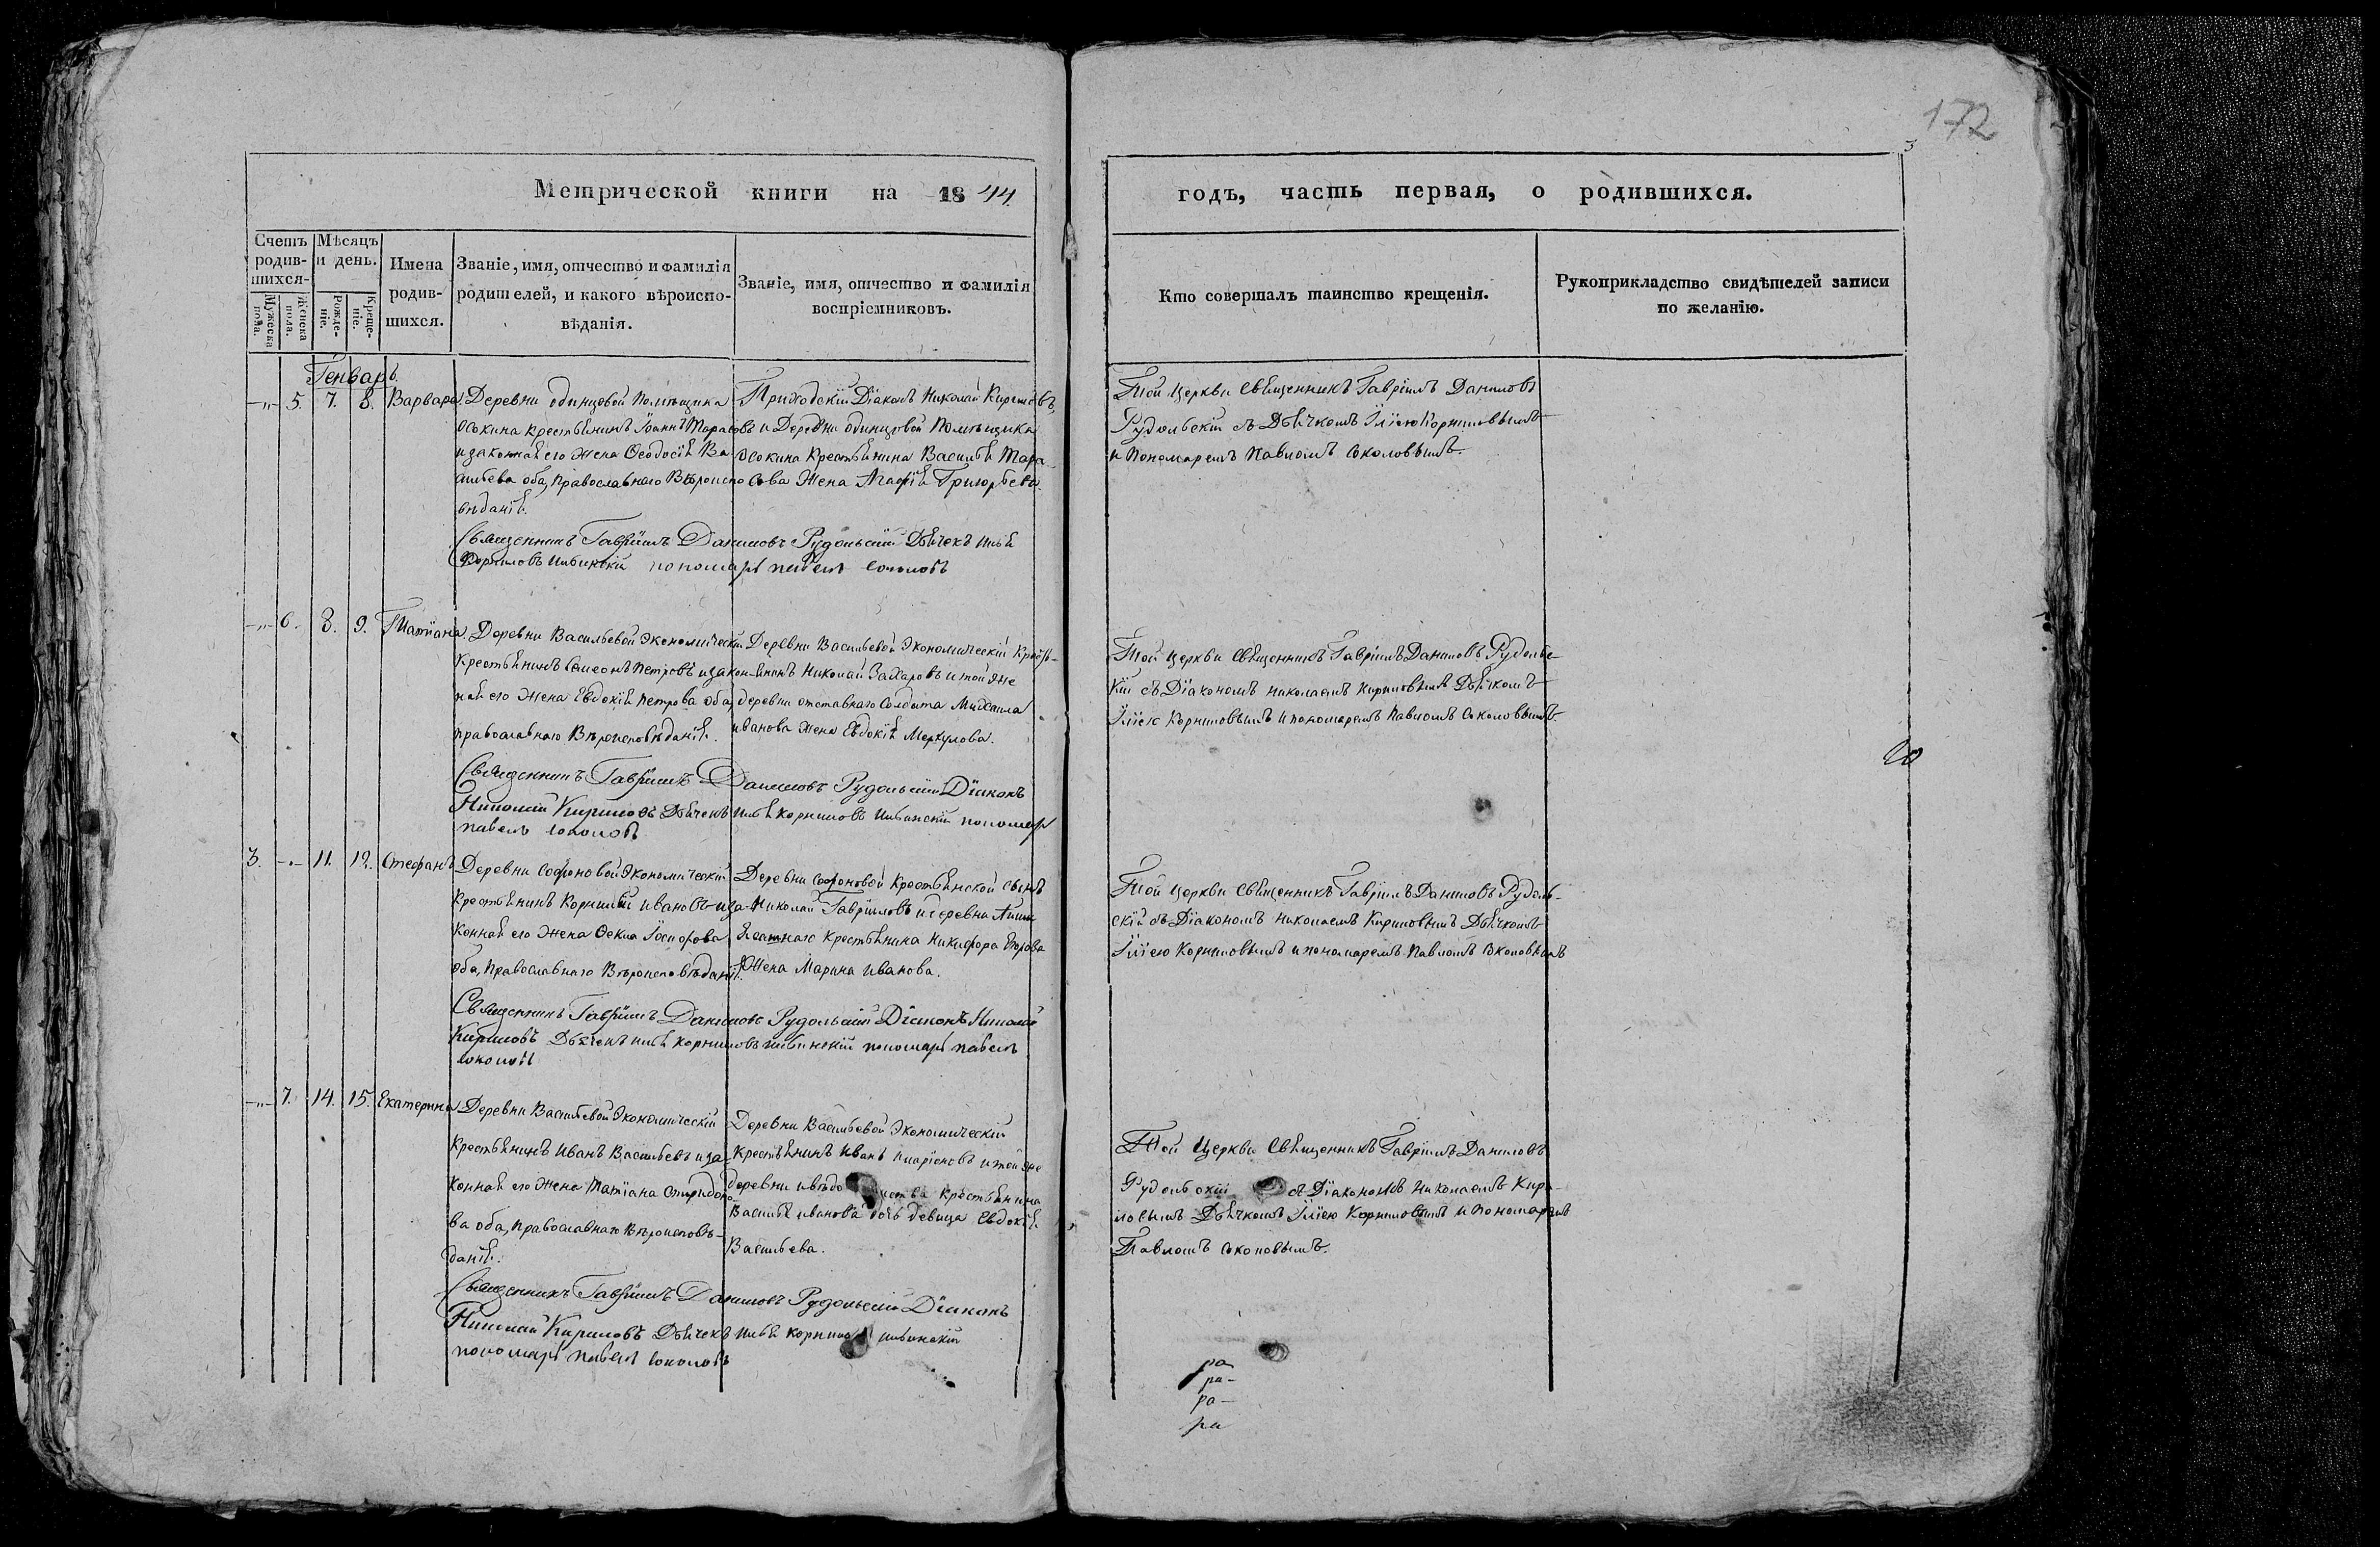 172
3
Метрической книги на 1844.
годъ, часть первая, о родившихся.
Счетъ родив-шихся.
Мужеска пола.
Женска пола.
Мѣсяцъ и день.
Рожде-ніе.
Креще-ніе.
Имена родив-шихся.
Званіе, имя, отчество и фамилія
родителей, и какого вѣроиспо-
вѣданія.
Званіе, имя, отчество и фамилія
воспріемниковъ.
Кто совершалъ таинство крещенія.
Рукоприкладство свидѣтелей записи
по желанію.
Генварь.
-„- 5. 7. 8. Варвара
Деревни одинцовой Помѣщика
Осокина крестьянинъ Іоаннъ Тарасовъ
и законная его жена Ѳеодосія Ва-
сильева оба, православнаго Вѣроиспо
вѣданія.
Приходскій Діаконъ Николай Кириловъ,
и Деревни одинцовой Помѣщика
Осокина Крестьянина Василья Тара-
сова Жена Агафія Григорьева.
Той Церкви Священникъ Гавріилъ Даниловъ
Рудольскій съ Дьячкомъ Іліею Корниловымъ
и Пономаремъ Павломъ Соколовымъ.
Священникъ Гавріилъ Даниловъ Рудольскій Дьячекъ Илья
Корниловъ Ильинскій пономарь павелъ соколовъ
-„- 6. 8. 9. Татіана.
Деревни Васильевой Экономическій
Крестьянинъ Симеонъ Петровъ и закон-
ная его жена Евдокія Петрова оба,
православнаго Вѣроисповѣданія.
Деревни Васильевой Экономическій Кресть-
янинъ Николай Захаровъ и той же
деревни отставнаго Солдата Михаила
иванова Жена Евдокія Меркулова.
Той Церкви Священникъ Гавріилъ Даниловъ Рудольс-
кій съ Діакономъ Николаемъ Кириловымъ Дьячкомъ
Іліею Корниловымъ и пономаремъ Павломъ Соколовымъ.
Священникъ Гавріилъ Даниловъ Рудольскій Діаконъ
Николай Кириловъ Дьячекъ Илья Корниловъ Ильинскій пономарь
павелъ соколовъ
3. -„- 11. 12. Стефанъ
Деревни Софоновой Экономическій
Крестьянинъ Корнилій ивановъ и за-
конная его жена Ѳекла Іосифова
оба, Православнаго Вѣроисповѣданія.
Деревни Софоновой Крестьянской сынъ
Николай Гавріиловъ и деревни
Крестьянина Никифора Егорова
Жена Марина Иванова.
Той Церкви Священникъ Гавріилъ Даниловъ Рудоль-
скій съ Діакономъ Николаемъ Кириловымъ Дьячкомъ
Іліею Корниловымъ и пономаремъ Павломъ Соколовымъ
Священникъ Гавріилъ Даниловъ Рудольскій Діаконъ Николай
Кириловъ Дьячекъ илья корниловъ ильинскій пономарь павелъ
соколовъ
-„- 7. 14. 15. Екатерина
Деревни Васильевой Экономическій
Крестьянинъ Иванъ Васильевъ и за-
конная его жена Татіана Спиридоно-
ва оба, Православнаго Вѣроисповѣ-
данія.
Деревни Васильевой Экономическій
Крестьянинъ Иванъ Иларіоновъ и той же
деревни Крестьянина
Василья иванова дочь девица Евдокія
Васильева.
Той Церкви Священникъ Гавріилъ Даниловъ
Рудольскій съ Діакономъ Николаемъ Кири-
ловымъ Дьячкомъ Іліею Корниловымъ и Пономаремъ
Павломъ Соколовымъ.
Священникъ Гавріилъ Даниловъ Рудольскій Діаконъ
Николай Кириловъ Дьячекъ илья корниловъ ильинскій
пономарь павелъ соколовъ
ра
ра-
ра-
ра